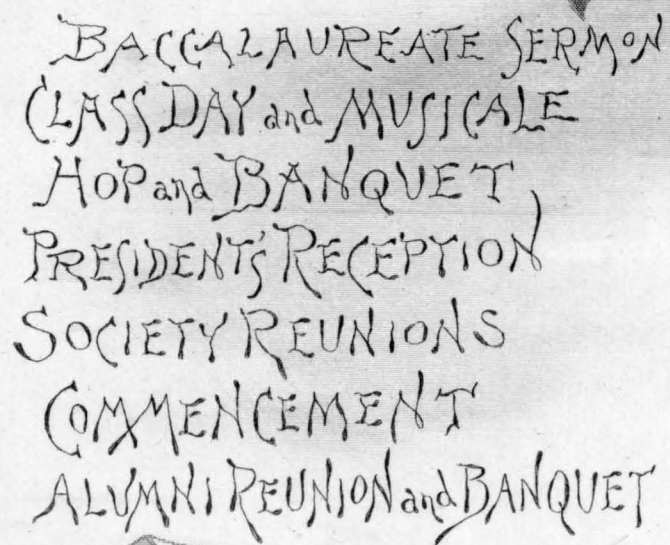 BACCALAUREATE SERMON
CLASS DAY and MUSICALE
HOP and BANQUET
PRESIDENT'S RECEPTION
SOCIETY REUNIONS
COMMENCEMENT
ALUMNI REUNION and BANQUET